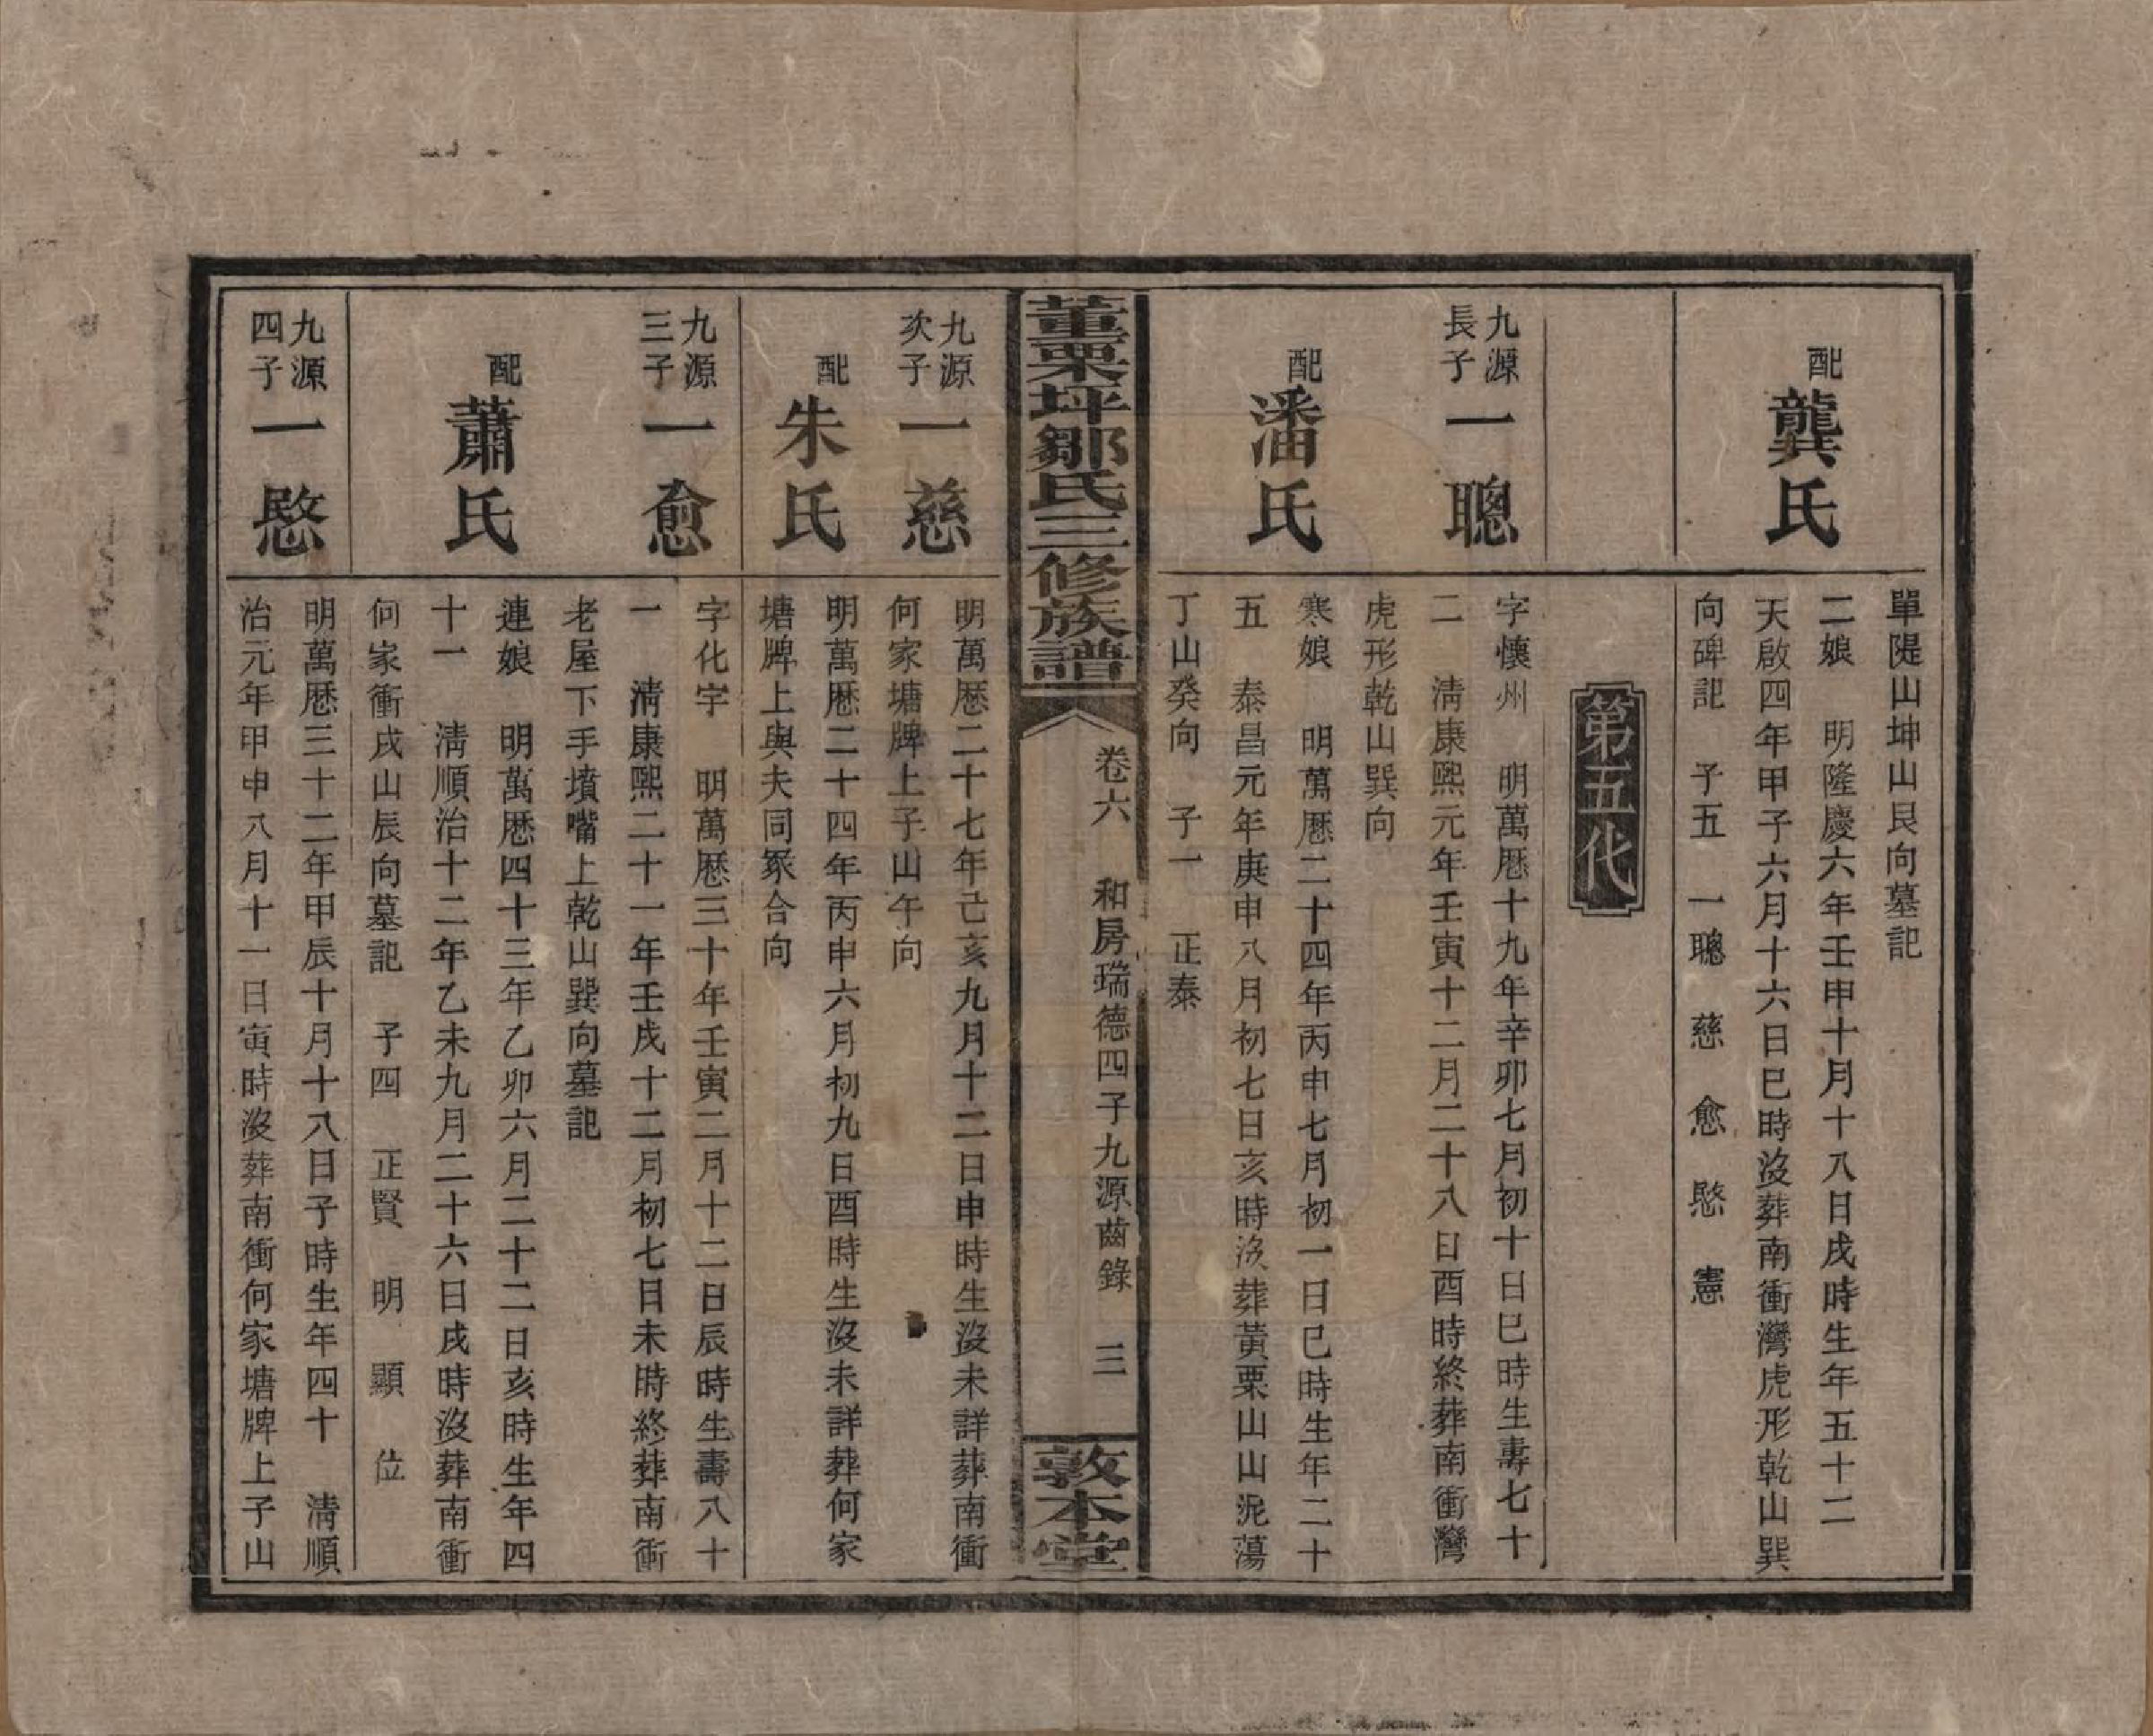 單隄山坤山艮向墓記
配龔氏
二娘　明隆慶六年壬申十月十八日戌時生年五十二
天啟四年甲子六月十六日巳時沒葬南衝灣虎形乾山巽
向碑記　子五　一聰　慈　愈　愍　憲
第五代
九源長子一聰
字懷州　明萬歷十九年辛卯七月初十日巳時生壽七十
二　清康熙元年壬寅十二月二十八日酉時終葬南衝灣
虎形乾山巽向
配潘氏
寒娘　明萬歷二十四年丙申七月初一日巳時生年二十
五　泰昌元年庚申八月初七日亥時沒葬黃栗山山泥蕩
丁山癸向　子一　正泰
董栗坪鄒氏三修族譜
卷六　和房瑞德四子九源齒錄　三
敦本堂
九源次子一慈
明萬歷二十七年己亥九月十二日申時生沒未詳葬南衝
何家塘牌上子山午向
配朱氏
明萬歷二十四年丙申六月初九日酉時生沒未詳葬何家
塘牌上與夫同冢合向
九源三子一愈
字化宇　明萬歷三十年壬寅二月十二日辰時生壽八十
一　清康熙二十一年壬戌十二月初七日未時終葬南衝
老屋下手墳嘴上乾山巽向墓記
配蕭氏
連娘　明萬歷四十三年乙卯六月二十二日亥時生年四
十一　清順治十二年乙未九月二十六日戌時沒葬南衝
何家衝戌山辰向墓記　子四　正賢　明　顯　位
九源四子一愍
明萬歷三十二年甲辰十月十八日子時生年四十　清順
治元年甲申八月十一日寅時沒葬南衝何家塘牌上子山